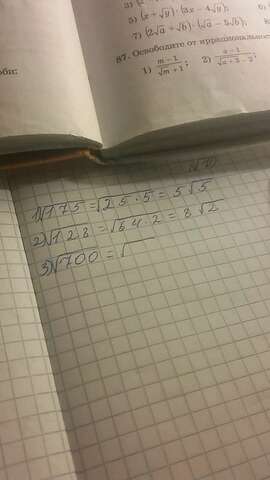 5) (x + √y) · (3x − 4√y);
7) (2√a + √b) · (3√a − 5√b);
87. Освободите от иррациональнос
1) m − 1 / √m + 1;
2) a − 1 / √a + 3 − 2;
оби:
1) √175 = √25 · 5 = 5√5
2) √128 = √64 · 2 = 8√2
3) √700 = √